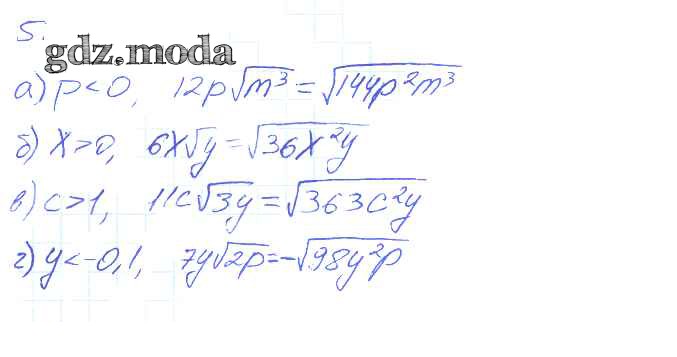 5.
gdz.moda
а) p<0, 12p√m³ = √144p²m³
б) x>0, 6x√y = √36x²y
в) c>1, 11c√3y = √363c²y
г) y<-0,1, 7y√2p = -√98y²p